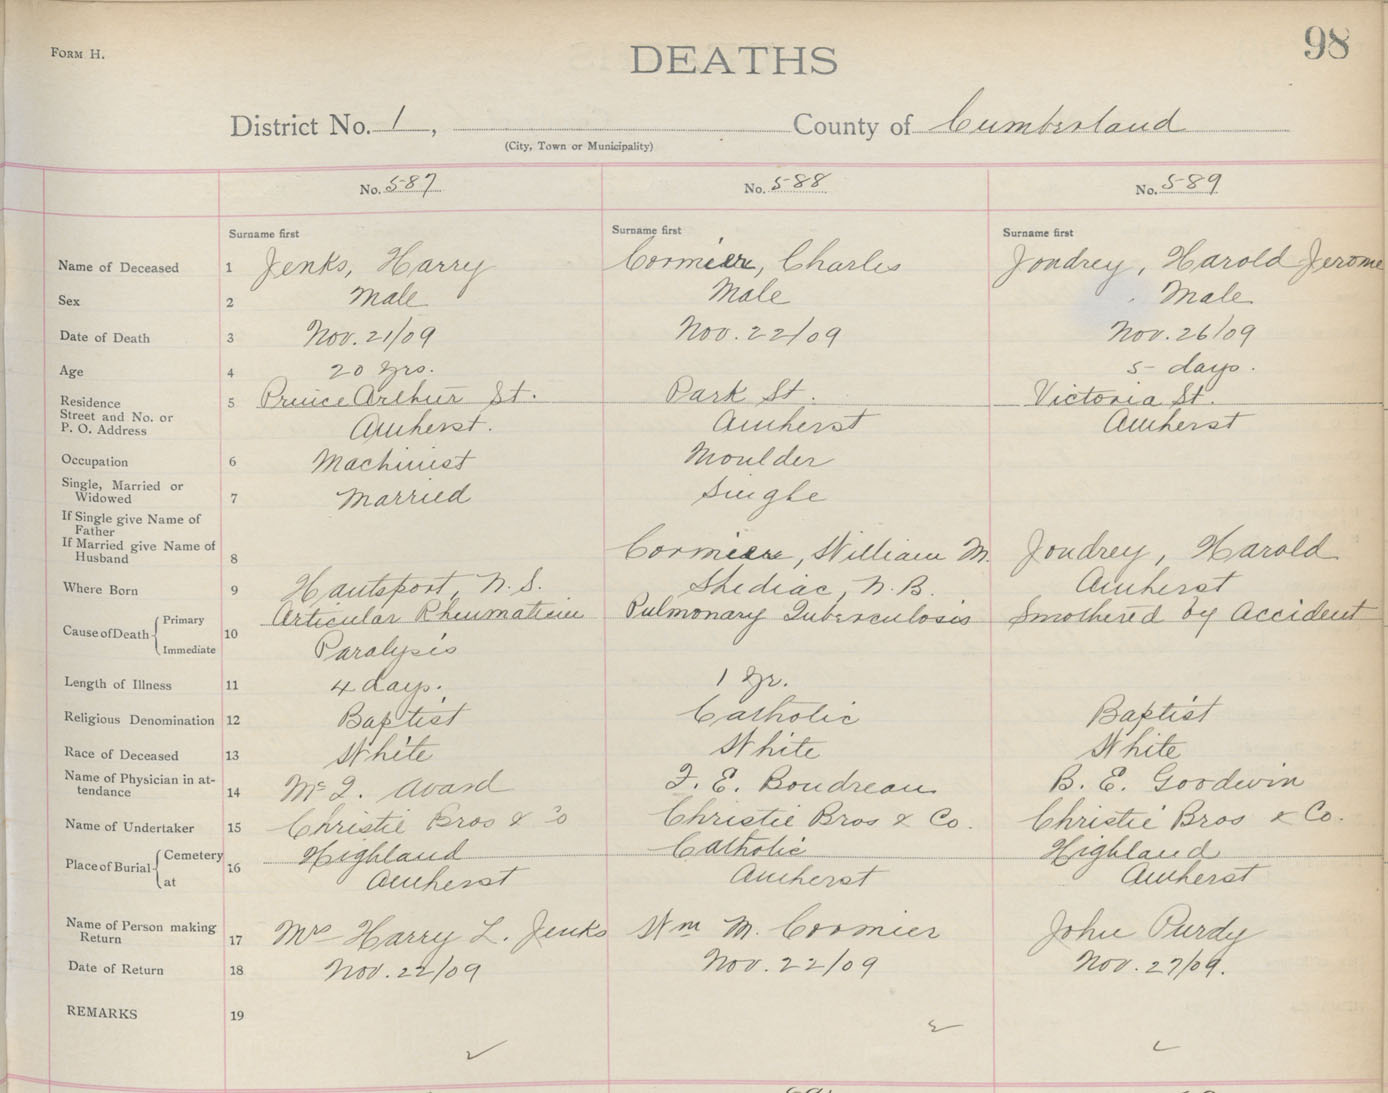 FORM H.
DEATHS
98
District No. 1, County of Cumberland
(City, Town or Municipality)
No. 587 No. 588 No. 589
Surname first Surname first Surname first
Name of Deceased 1 Jenks, Harry Cormier, Charles Joudrey, Harold Jerome
Sex 2 Male Male Male
Date of Death 3 Nov. 21/09 Nov. 22/09 Nov. 26/09
Age 4 20 yrs. 5 days.
Residence 5 Prince Arthur St. Park St. Victoria St.
Street and No. or
P. O. Address Amherst. Amherst Amherst
Occupation 6 Machinist Moulder
Single, Married or
Widowed 7 Married Single
If Single give Name of
Father
If Married give Name of
Husband 8 Cormier, William M. Joudrey, Harold
Where Born 9 Hantsport, N.S. Shediac, N.B. Amherst
Cause of Death 10 Primary Articular Rheumatism Pulmonary Tuberculosis Smothered by Accident
Immediate Paralysis
Length of Illness 11 4 days. 1 yr.
Religious Denomination 12 Baptist Catholic Baptist
Race of Deceased 13 White White White
Name of Physician in at-
tendance 14 Mc Q. Avard F. E. Boudreau B. E. Goodwin
Name of Undertaker 15 Christie Bros & Co Christie Bros & Co. Christie Bros & Co.
Place of Burial 16 Cemetery Highland Catholic Highland
at Amherst Amherst Amherst
Name of Person making
Return 17 Mrs Harry L. Jenks Wm M. Cormier John Purdy
Date of Return 18 Nov. 22/09 Nov. 22/09 Nov. 27/09.
REMARKS 19